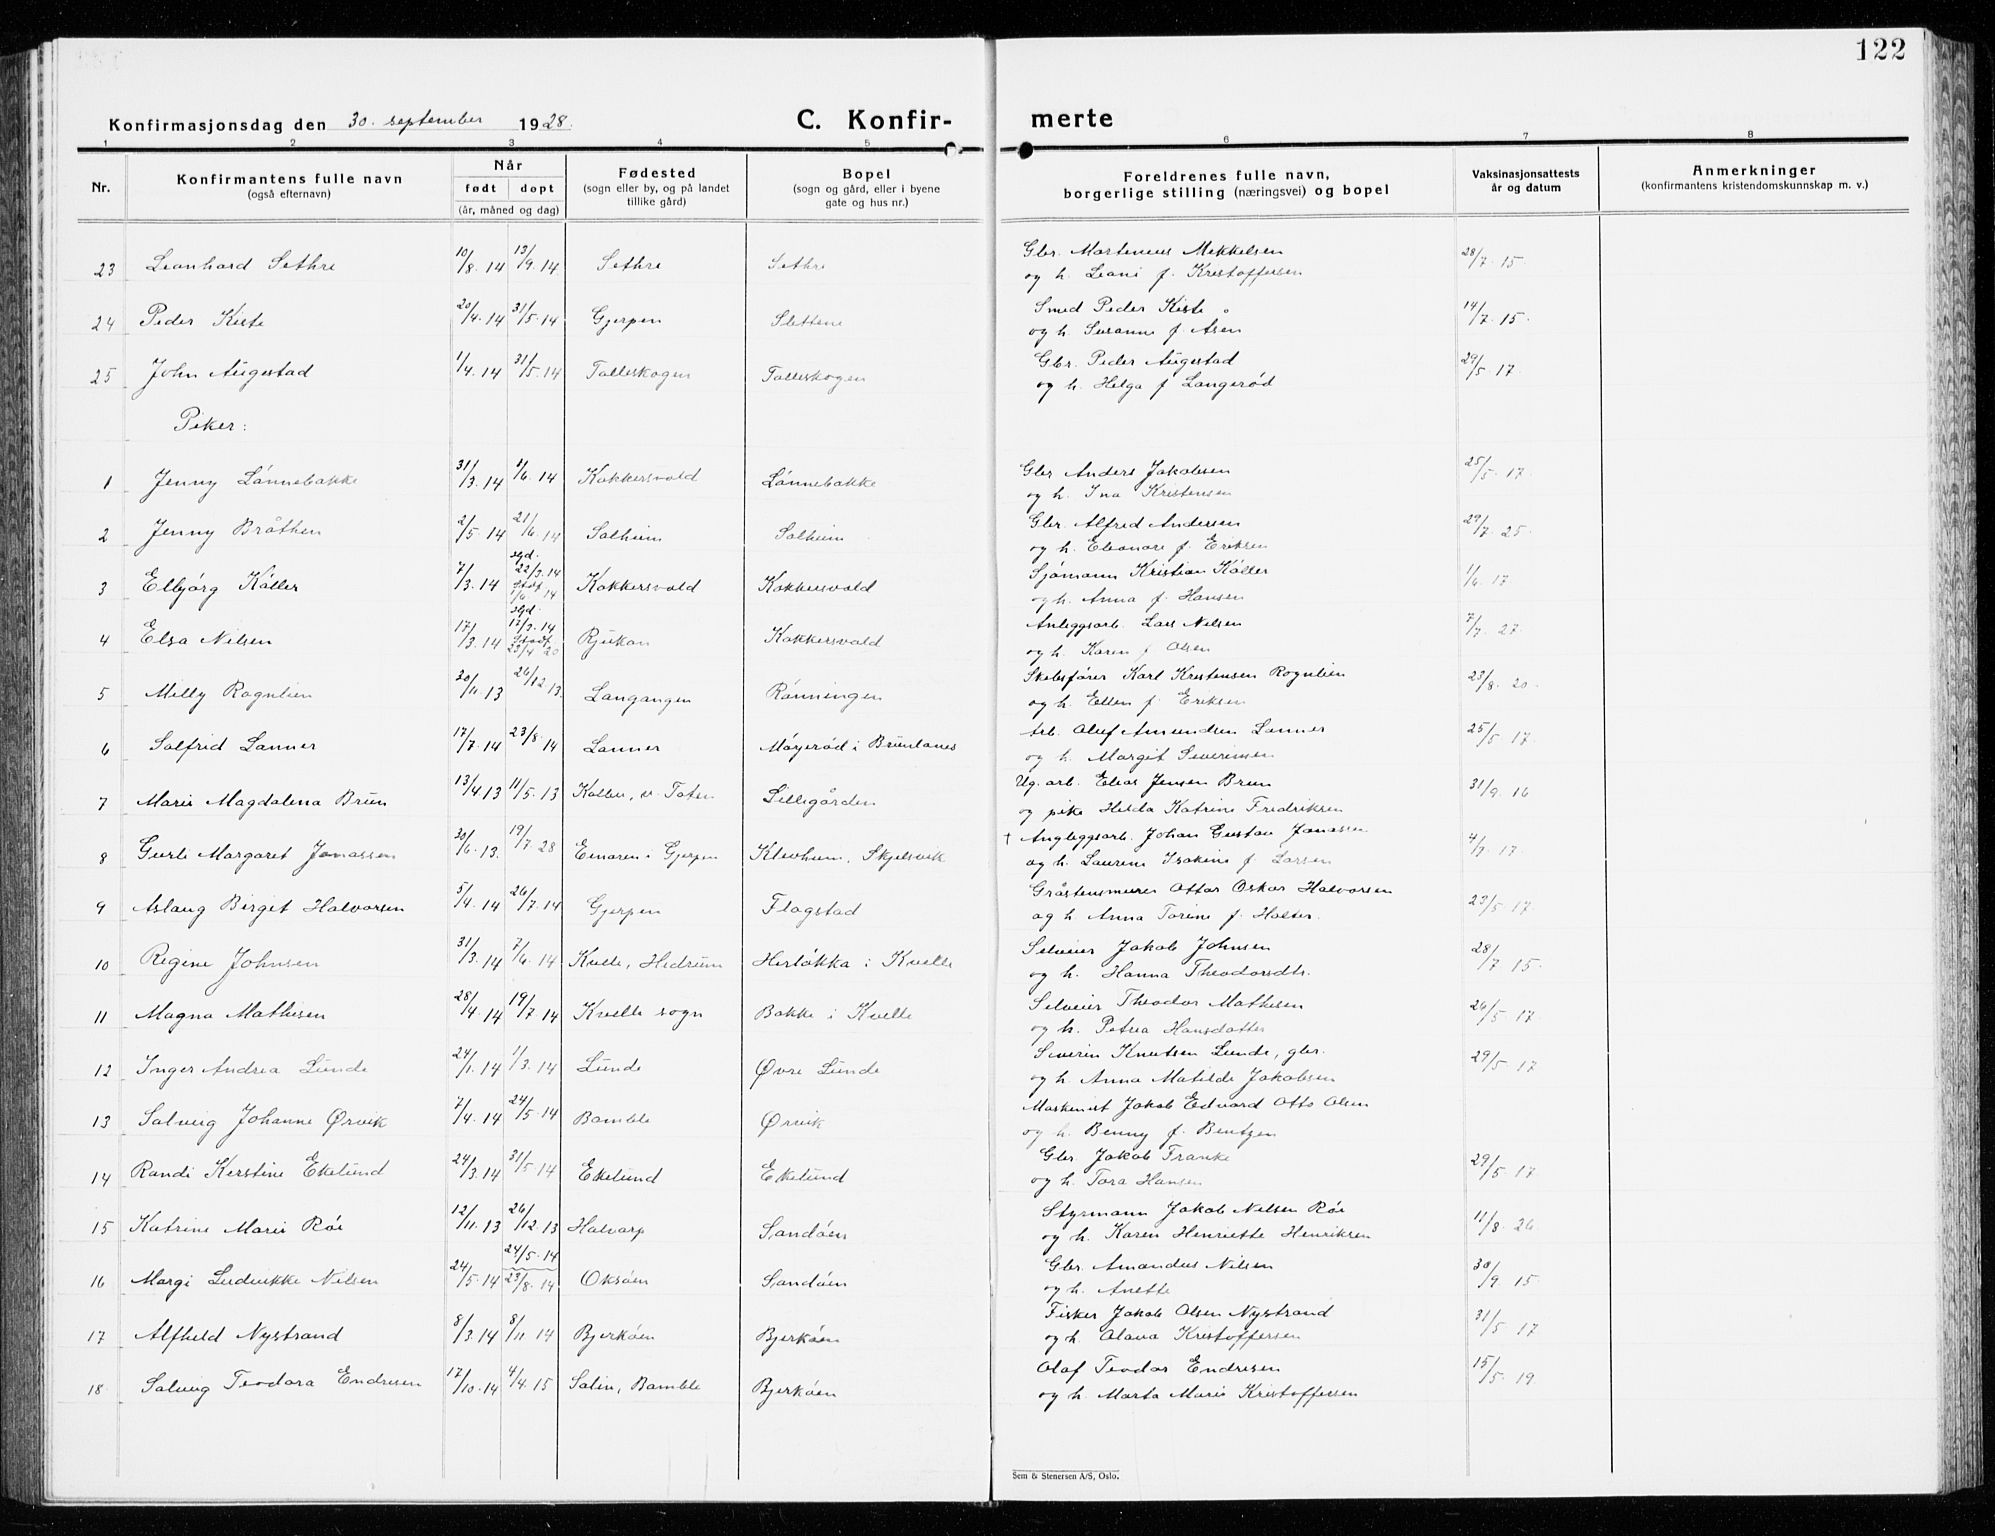 122
Konfirmasjonsdag den 30. september 1928.
C. Konfir-
merte
1 2 3 4 5 6 7 8
Nr.
Konfirmantens fulle navn
(også efternavn)
Når
født døpt
(år, måned og dag)
Fødested
(sogn eller by, og på landet
tillike gård)
Bopel
(sogn og gård, eller i byene
gate og hus nr.)
Foreldrenes fulle navn,
borgerlige stilling (næringsvei) og bopel
Vaksinasjonsattests
år og datum
Anmerkninger
(konfirmantens kristendomskunnskap m. v.)
23 Leonhard Sethre 10/8.14 13/9.14 Sethre Sethre Gbr. Martenius Mikkelsen 28/7.15
og h. Leani f. Kristoffersen
24 Peder Kiste 20/4.14 31/5.14 Gjerpen Slettene Smed Peder Kiste 14/7.15
og h. Susanne f. Åsen
25 John Augestad 1/4.14 31/5.14 Talleskogen Talleskogen Gbr. Peder Augestad 29/5.17
og h. Helga f. Langerød
Piker:
1 Jenny Lønnebakke 31/3.14 1/6.14 Kokkersvold Lønnebakke Gbr. Anders Jakobsen 25/5.17
og h. Ina Kristensen
2 Jenny Bråthen 2/5.14 21/6.14 Solheim Solheim Gbr. Alfred Andersen 29/7.25
og h. Eleonore f. Eriksen
3 Elbjørg Køller 7/3.14 hjd. 22/3.14 stadf. 1/6.14 Kokkersvold Kokkersvold Sjømann Kristian Køller 1/6.17
og h. Anna f. Hansen
4 Elsa Nilsen 17/3.14 hjd. 17/3.14 stadf. 23/4 20 Rjukan Kokkersvold Anleggsarb. Lars Nilsen 7/7.27
og h. Karen f. Olsen
5 Milly Rognlien 30/11.13 26/12.13 Langangen Rønningen Skibsfører Karl Kristensen Rognlien 23/8.20
og h. Ellen f. Eriksen
6 Solfrid Lanner 17/7.14 23/8.14 Lanner Møyerød i Brunlanes Arb. Oluf Amundsen Lanner 25/5.17
og h. Margit Severinsen
7 Marie Magdalena Brun 13/4.13 11/5.13 Kolbu, v. Toten Lillegården Ug. arb. Elias Jensen Brun 31/9.16
og pike Helda Katrine Fredriksen
8 Gurli Margaret Jonassen 30/6.13. 19/7.28 Enaren i Gjerpen Klevheim, Skjelsvik † Angleggsarb. Johan Gustav Jonassen 4/7.17
og h. Laurine Isakine f. Larsen
9 Aslaug Birgit Halvorsen 5/4.14 26/7.14 Gjerpen Flogstad Gråstensmurer Ottar Oskar Halvorsen 23/5.17
og h. Anna Torine f. Holter.
10 Regine Johnsen 31/3.14 7/6.14 Kvelle, Hedrum Herløkka i Kvelle Selveier Jakob Johnsen 28/7.15
og h. Hanna Theodorsdtr.
11 Magna Mathisen 28/4.14 19/7.14 Kvelle sogn Bakke i Kvelle Selveier Theodor Mathisen 26/5.17
og h. Petrea Hansdatter
12 Inger Andrea Lunde 24/1.14 1/3.14 Lunde Øvre Lunde Severin Knutsen Lunde, gbr. 29/5.17
og h. Anna Matilde Jakobsen
13 Solveig Johanne Ørvik 7/4.14 24/5.14 Bamble Ørvik Maskinist Jakob Edvard Otto Olsen
og h. Benny f. Bentzen
14 Randi Kirstine Ekelund 24/3.14 31/5.14 Ekelund Ekelund Gbr. Jakob Franke 29/5.17
og h. Tora Hansen
15 Katrine Marie Røe 12/11.13 26/12.13 Halvarp Sandøen Styrmann Jakob Nilsen Røe 11/8.26
og h. Karen Henriette Henriksen
16 Margi Ludvikke Nilsen 24/5.14 24/5.14 23/8.14 Oksøen Sandøen Gbr. Amandus Nilsen 30/9.15
og h. Anette
17 Alfhild Nystrand 8/3.14 8/11.14 Bjerkøen Bjerkøen Fisker Jakob Olsen Nystrand 31/5.17
og h. Olava Kristoffersen
18 Solveig Teodora Endresen 17/10.14 4/4.15 Salin, Bamble Bjerkøen Olaf Teodor Endresen 15/5.19
og h. Marta Marie Kristoffersen
Sem & Stenersen A/S, Oslo.